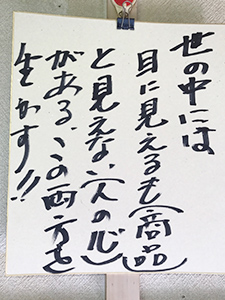 世の中には
目に見えるも(商品)
と見えない(人の心)
がある、この両方を
生かす!!